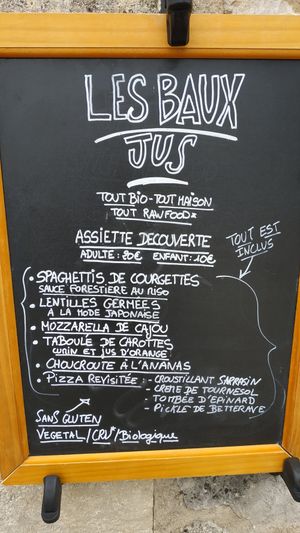 LES BAUX
JUS
TOUT BIO - TOUT MAISON
TOUT RAWFOOD*
ASSIETTE DECOUVERTE
ADULTE: 20€ ENFANT: 10€
TOUT EST
INCLUS
• SPAGHETTIS DE COURGETTES
SAUCE FORESTIERE AU MISO
• LENTILLES GERMÉES
À LA MODE JAPONAISE
• MOZZARELLA DE CAJOU
• TABOULÉ DE CAROTTES
CUMIN ET JUS D'ORANGE
• CHOUCROUTE À L'ANANAS
• PIZZA REVISITÉE : - CROUSTILLANT SARRASIN
- CREME DE TOURNESOL
- TOMBÉE D'EPINARD
- PICKLE DE BETTERAVE
SANS GLUTEN
VEGETAL / CRU* / Biologique